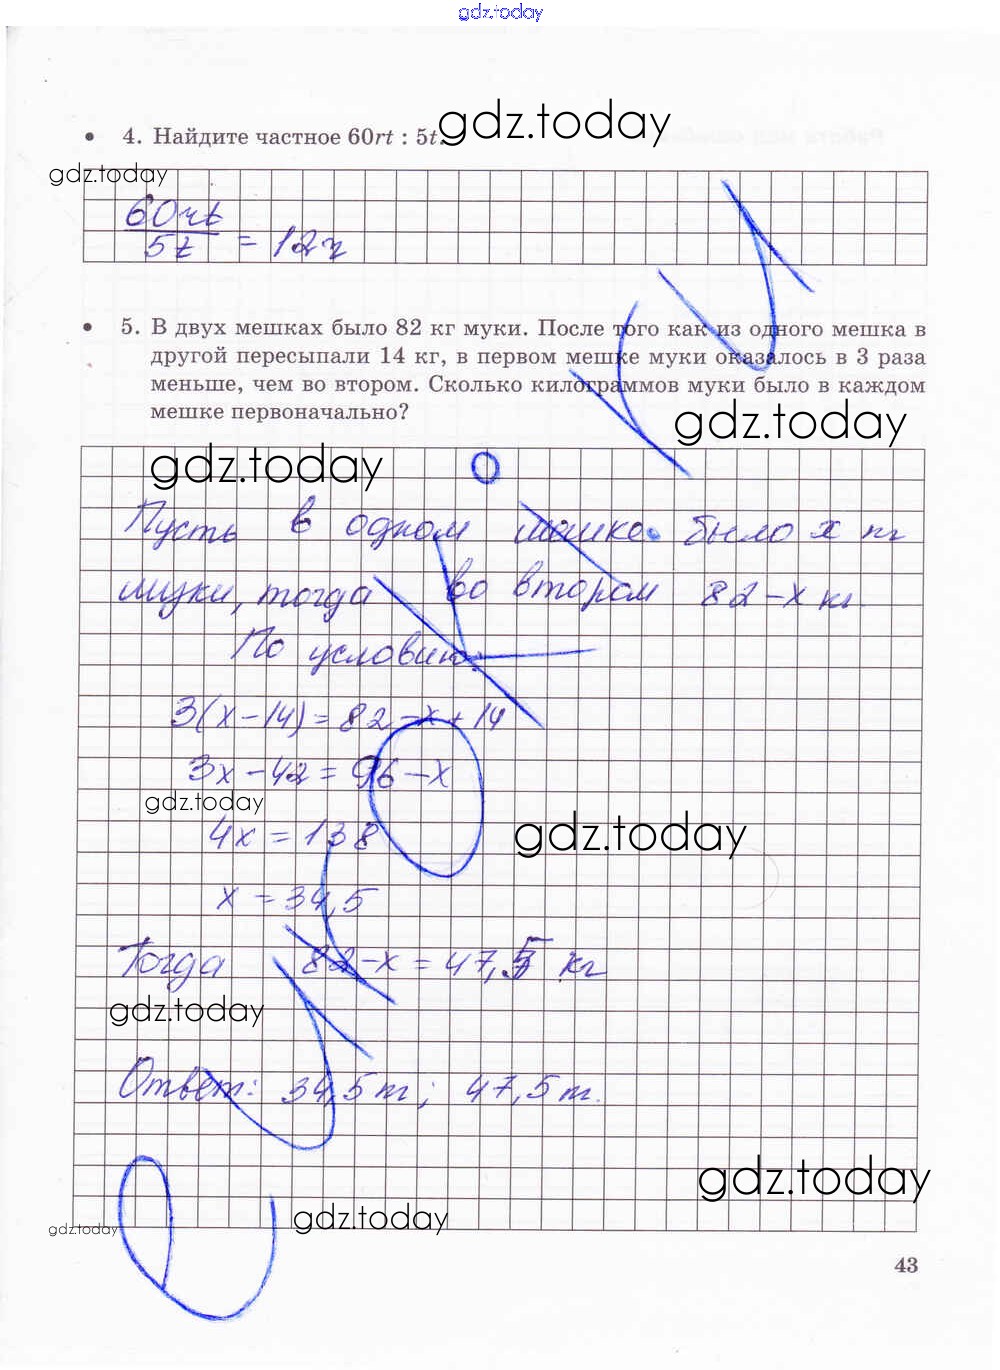 gdz.today
4. Найдите частное 60rt : 5t.
gdz.today
gdz.today
60rt
5t
= 12r
5. В двух мешках было 82 кг муки. После того как из одного мешка в
другой пересыпали 14 кг, в первом мешке муки оказалось в 3 раза
меньше, чем во втором. Сколько килограммов муки было в каждом
мешке первоначально?
gdz.today
gdz.today
Пусть в одном мешке было x кг
муки, тогда во втором 82 - x кг.
По условию:
3(x - 14) = 82 - x + 14
3x - 42 = 96 - x
gdz.today
4x = 138
gdz.today
x = 34,5
Тогда 82 - x = 47,5 кг
gdz.today
Ответ: 34,5 кг; 47,5 кг.
gdz.today
gdz.today
gdz.today
43